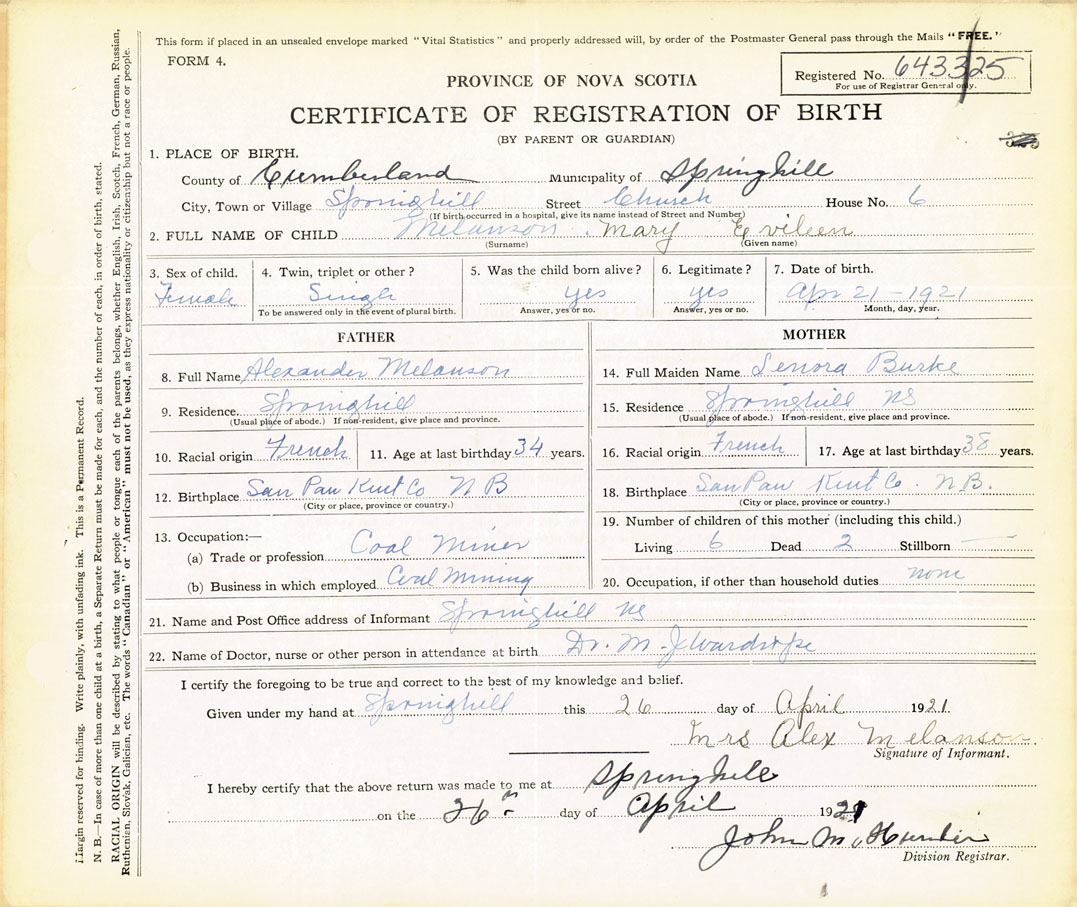 This form if placed in an unsealed envelope marked "Vital Statistics" and properly addressed will, by order of the Postmaster General pass through the Mails "FREE."
FORM 4.
Registered No. 643325
For use of Registrar General only.
PROVINCE OF NOVA SCOTIA
CERTIFICATE OF REGISTRATION OF BIRTH
(BY PARENT OR GUARDIAN)
1. PLACE OF BIRTH.
County of Cumberland Municipality of Springhill
City, Town or Village Springhill Street Church House No. 6
(If birth occurred in a hospital, give its name instead of Street and Number)
2. FULL NAME OF CHILD Melanson Mary Evileen
(Surname) (Given name)
3. Sex of child. 4. Twin, triplet or other? 5. Was the child born alive? 6. Legitimate? 7. Date of birth.
Female Single yes yes Apr 21-1921
To be answered only in the event of plural birth. Answer, yes or no. Answer, yes or no. Month, day, year.
FATHER
8. Full Name Alexander Melanson
9. Residence. Springhill
(Usual place of abode.) If non-resident, give place and province.
10. Racial origin French 11. Age at last birthday 34 years.
12. Birthplace San Pau Kent Co N B
(City or place, province or country.)
13. Occupation:—
(a) Trade or profession Coal Miner
(b) Business in which employed Coal Mining
MOTHER
14. Full Maiden Name Lenora Burke
15. Residence Springhill NS
(Usual place of abode.) If non-resident, give place and province.
16. Racial origin French 17. Age at last birthday 38 years.
18. Birthplace San Pau Kent Co. N.B.
(City or place, province or country.)
19. Number of children of this mother (including this child.)
Living 6 Dead 2 Stillborn —
20. Occupation, if other than household duties none
21. Name and Post Office address of Informant Springhill NS
22. Name of Doctor, nurse or other person in attendance at birth Dr. M. J Wardrope
I certify the foregoing to be true and correct to the best of my knowledge and belief.
Given under my hand at Springhill this 26 day of April 1921
Mrs Alex Melanson
Signature of Informant.
I hereby certify that the above return was made to me at Springhill
on the 26 day of April 1921
John M. Hunter
Division Registrar.
Margin reserved for binding. Write plainly, with unfading ink. This is a Permanent Record.
N. B.—In case of more than one child at a birth, a Separate Return must be made for each, and the number of each, in order of birth, stated.
RACIAL ORIGIN will be described by stating to what people or tongue each of the parents belongs, whether English, Irish, Scotch, French, German, Russian,
Ruthenian, Slovak, Galician, etc. The words "Canadian" or "American" must not be used, as they express nationality or citizenship but not a race or people.